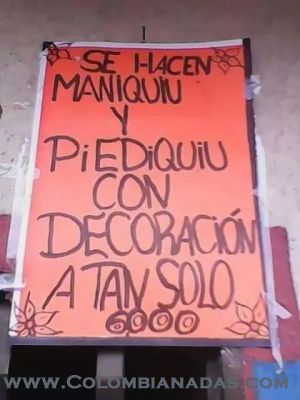 SE HACEN
MANIQUIU
Y
PiEDiQUiU
CON
DECORACIÓN
A TAN SOLO
6000
www.Colombianadas.com